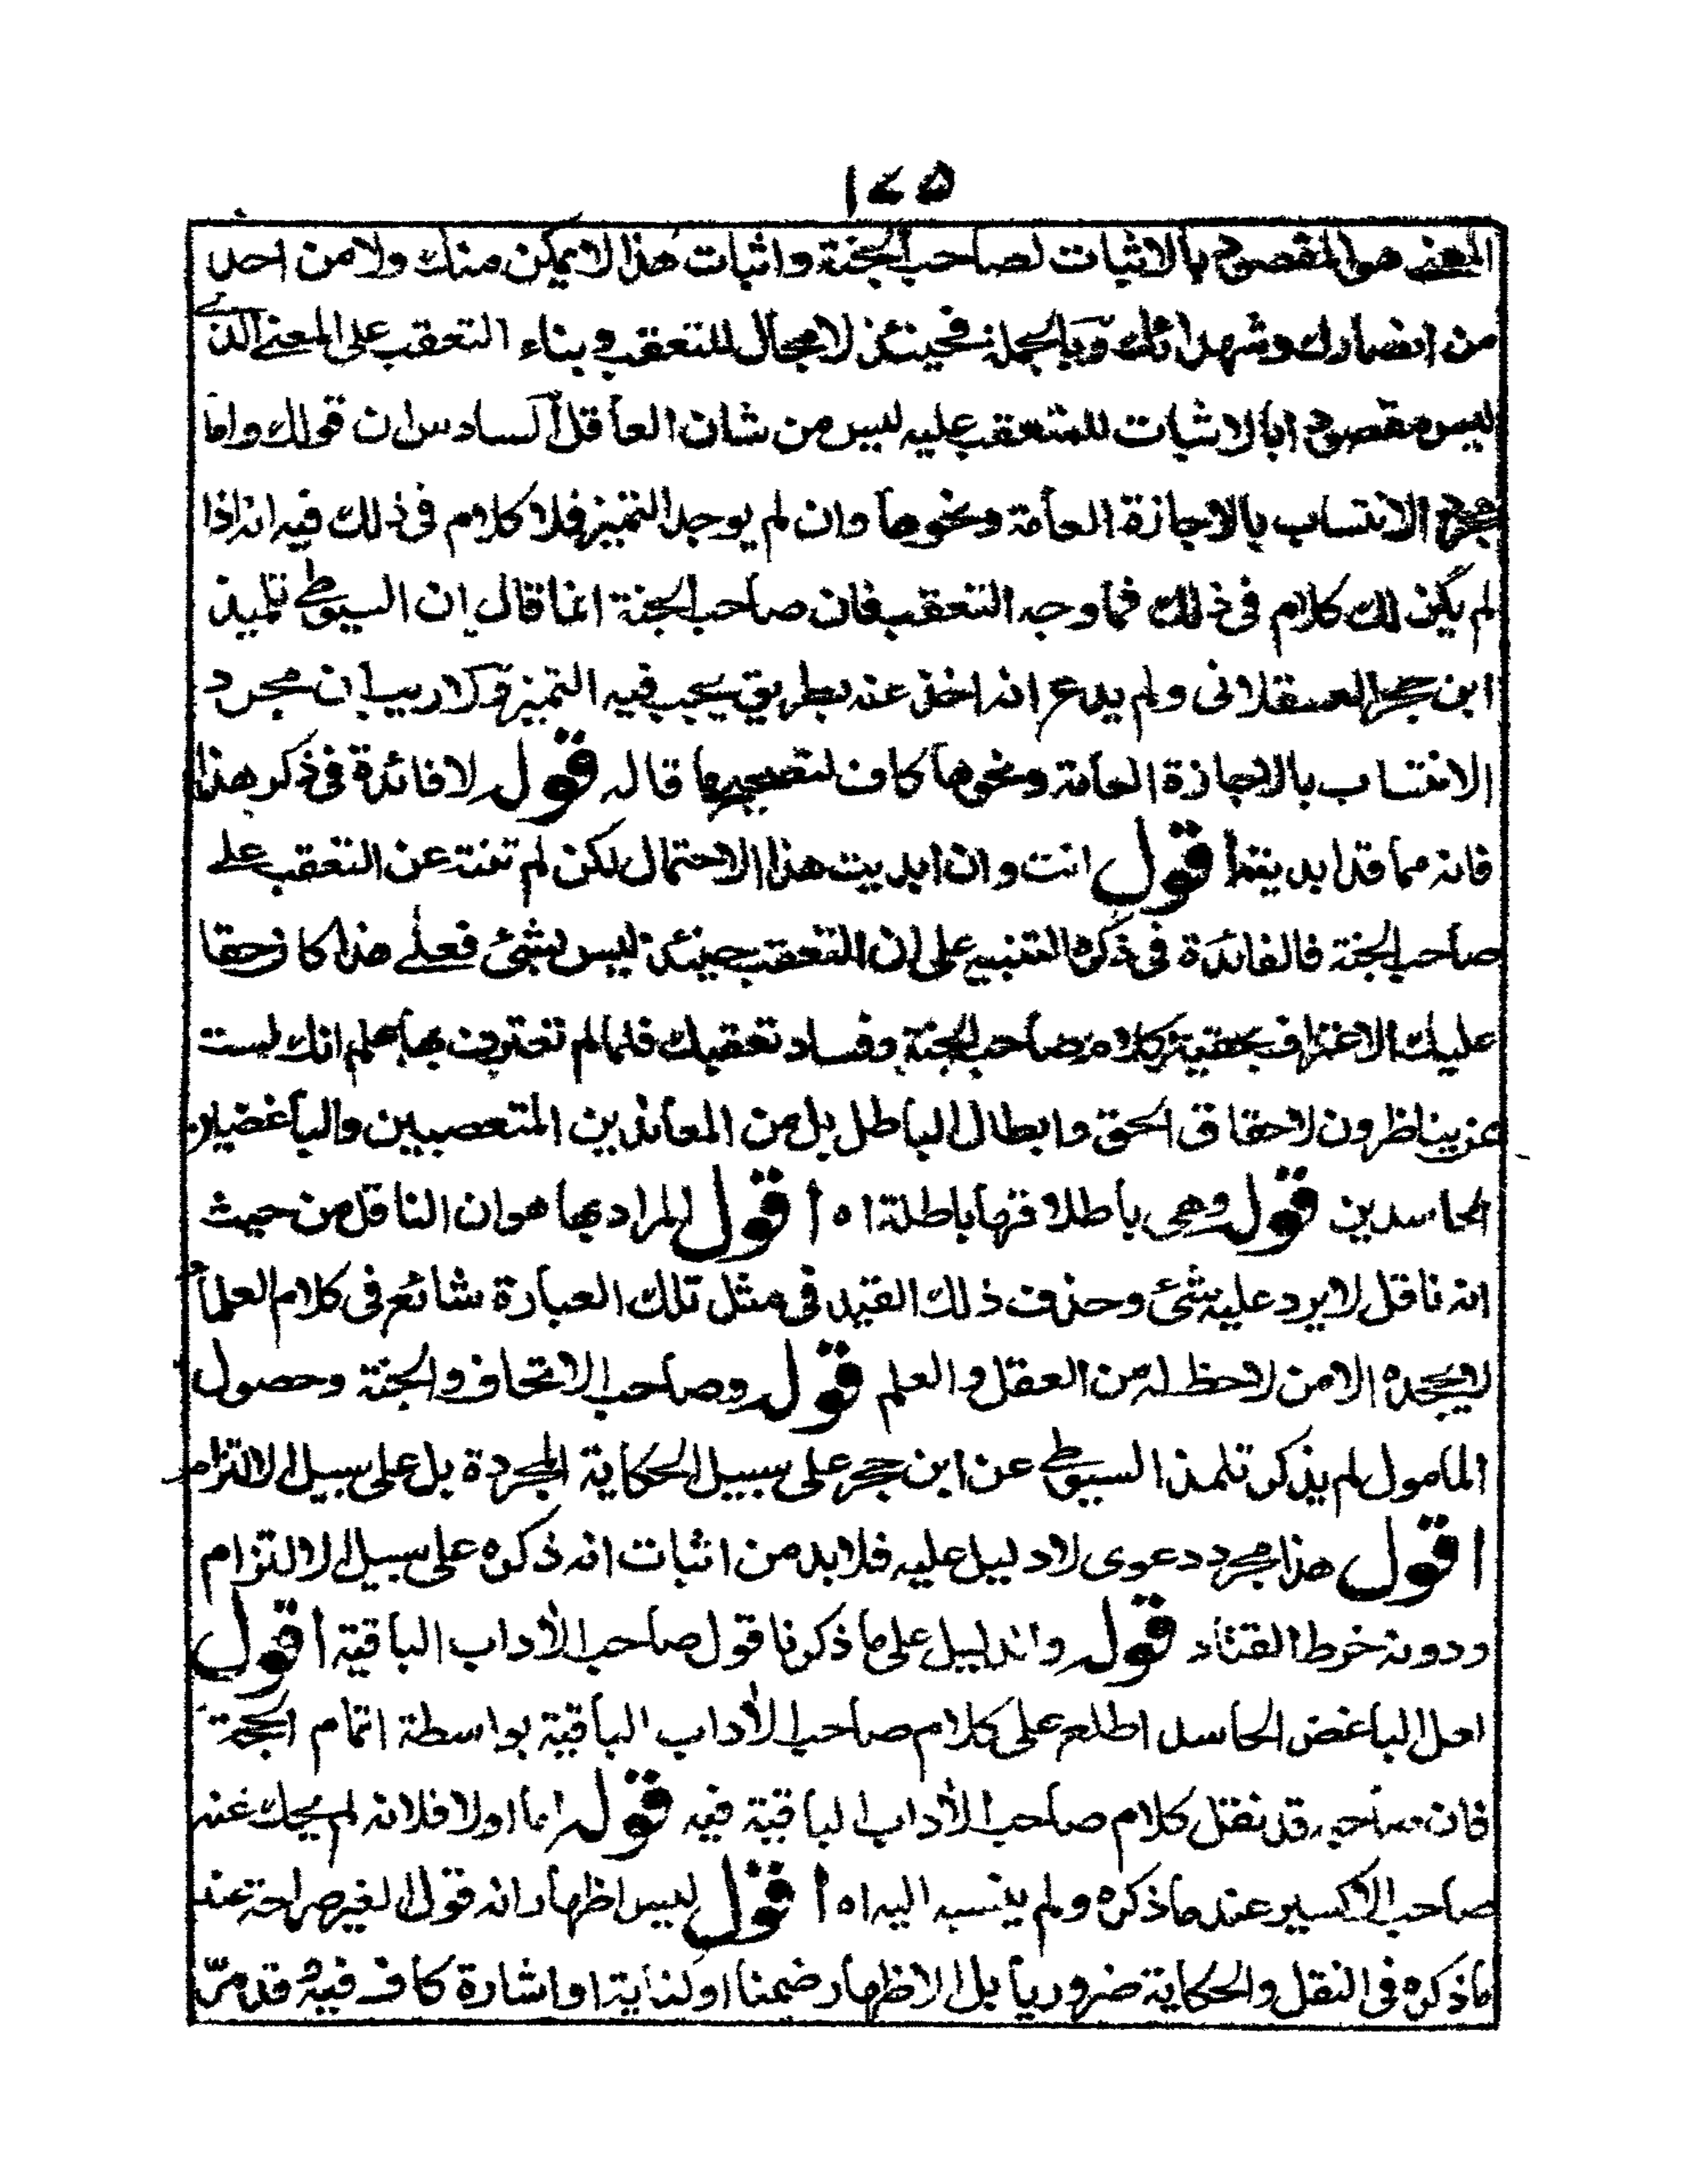 ١٢٥
المعنى هو المقصود بالاثبات لصاحب الجنة واثبات هذا لا يمكن منك ولا من احد
من انصارك وشهدائك وبالجملة فحينئذ لا مجال للتعقب وبناء التعقب على المعنى الذي
ليس مقصودا بالاثبات للمتعقب عليه ليس من شان العاقل السادس ان قولك واما
مجرد الانتساب بالاجازة العامة ونحوها وان لم يوجد التميز فلا كلام فى ذلك فيه انه اذا
لم يكن لك كلام فى ذلك فما وجه التعقب فان صاحب الجنة انما قال ان السيوطى تلميذ
ابن حجر العسقلانى ولم يدع انه اخذ عنه بطريق يجب فيه التميز ولا ريب ان مجرد
الانتساب بالاجازة العامة ونحوها كاف لتصحيح ما قاله قوله لا فائدة فى ذكر هذا
فانه مما قد ابديته اقول انت وان ابديت هذا الاحتمال لكن لم تنته عن التعقب على
صاحب الجنة فالفائدة فى ذكره التنبيه على ان التعقب حينئذ ليس بشئ فعلى هذا كان حقا
عليك الاعتراف بحقية كلام صاحب الجنة وفساد تعقبك فلما لم تعترف بها علم انك لست
ممن يناظرون لاحقاق الحق وابطال الباطل بل من المعاندين المتعصبين والباغضين
الحاسدين قوله وهى باطلاقها باطلة اه اقول المراد بها هو ان الناقل من حيث
انه ناقل لا يرد عليه شئ وحذف ذلك القيد فى مثل تلك العبارة شائع فى كلام العلماء
لا يجحده الا من لا حظ له من العقل والعلم قوله وصاحب الاتحاف والجنة وحصول
المامول لم يذكر تلمذ السيوطى عن ابن حجر على سبيل الحكاية المجردة بل على سبيل الالتزام
اقول هذا مجرد دعوى لا دليل عليه فلا بد من اثبات انه ذكره على سبيل الالتزام
ودونه خرط القتاد قوله والدليل على ما ذكرنا قول صاحب الأداب الباقية اقول
لعل الباغض الحاسد اطلع على كلام صاحب الأداب الباقية بواسطة اتمام الحجة
فان صاحبه قد نقل كلام صاحب الأداب الباقية فيه قوله اما اولا فلانه لم يحك عنه
صاحب الاكسير عند ما ذكره ولم ينسبه اليه اه اقول ليس اظهار انه قول الغير صراحة عند
ما ذكره فى النقل والحكاية ضروريا بل الاظهار ضمنا او كناية او اشارة كاف فيه وقد مرّ